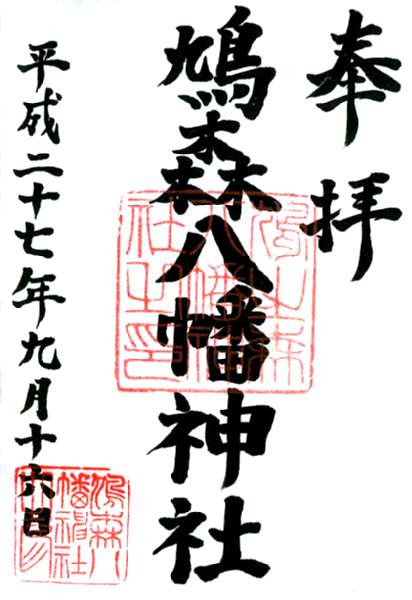 奉拝
鳩森八幡神社
平成二十七年九月十六日
鳩之森八幡社之印
鳩森八幡神社